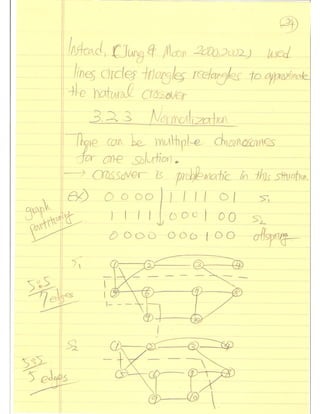 24
Instead, (Jung & Moon 2000, 2002) used
lines circles triangles rectangles to approximate
the natural crossover
3.2.3 Normalization
There can be multiple chromosomes
for one solution.
→ crossover is problematic in this situation
ex) 0 0 0 0 | 1 1 1 1 0 1 S1
graph partitioning
1 1 1 1 | 0 0 0 1 0 0 S2
0 0 0 0 0 0 0 1 0 0 offspring
S1
1 2 3 4
5:5
7 edges
5 6 7 8
9 10
S2
1 2 3 4
5:5
5 edges
5 6 7 8
9 10